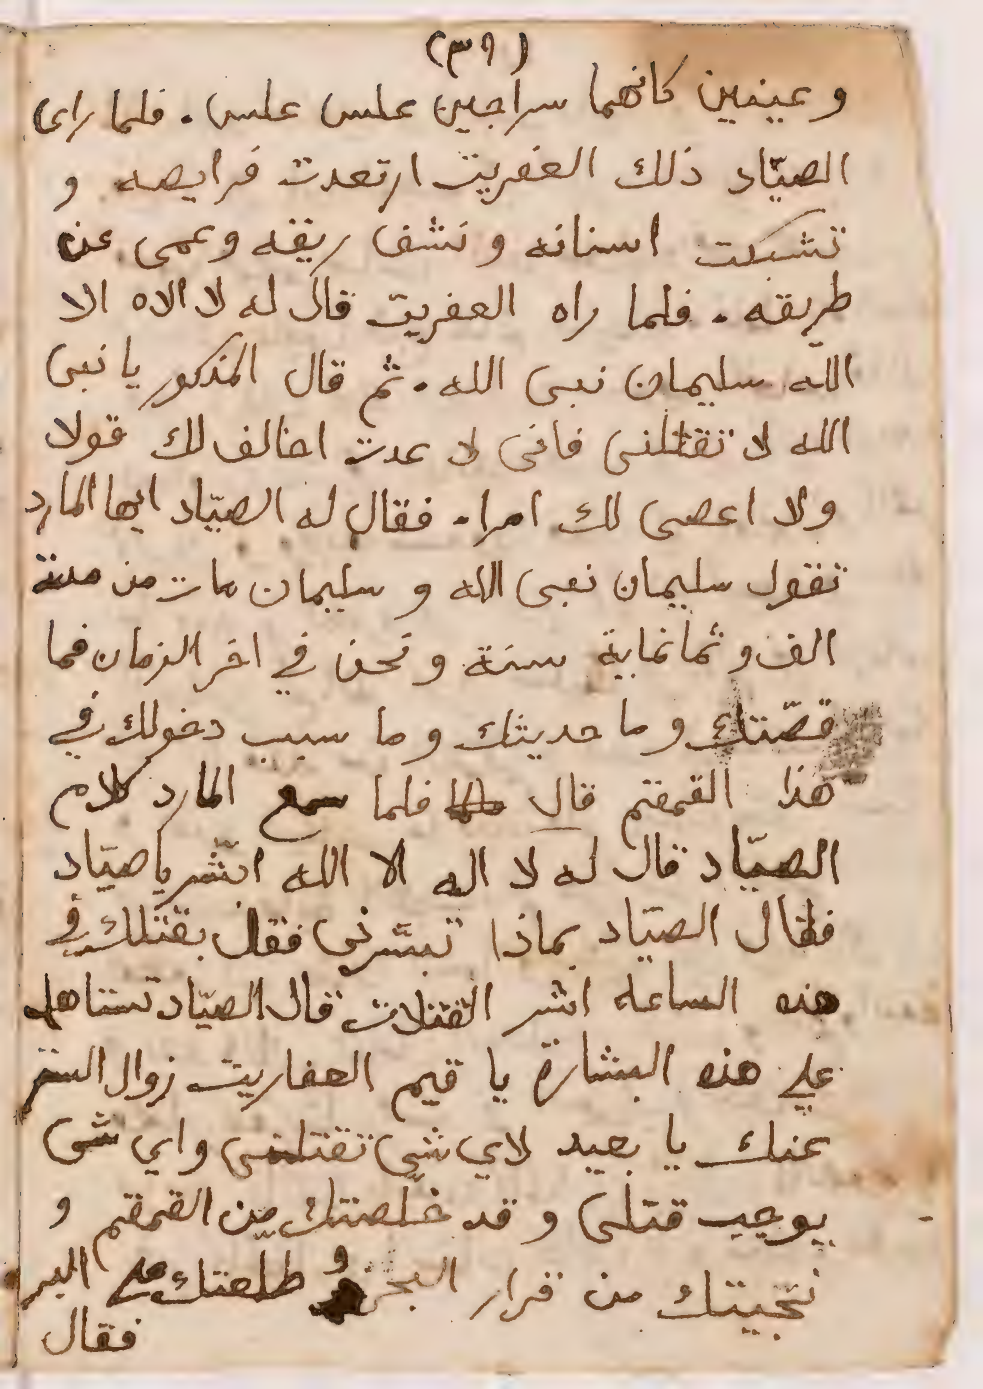 (٣٩)
وعينين كانهما سراجين علس علس. فلما راى
الصيّاد ذلك العفريت ارتعدت فرايصه و
تشبكت اسنانه ونشف ريقه وعمى عن
طريقه. فلما راه العفريت قال له لا الاه الا
الله سليمان نبى الله. ثم قال المذكور يا نبى
الله لا تقتلنى فانى لا عدت اخالف لك قولا
ولا اعصى لك امرا. فقال له الصيّاد ايها المارد
تقول سليمان نبى الله و سليمان مات من مدة
الف و ثمانماية سنة ونحن في اخر الزمان فما
قصّتك وما حديثك وما سبب دخولك في
هذا القمقم قال فلما سمع المارد كلام
الصيّاد قال له لا اله الا الله ابشّر يا صيّاد
فقال الصيّاد بماذا تبشّرنى فقال بقتلك في
هذه الساعه اشر القتلات قال الصيّاد تستاهل
علي هذه البشارة يا قيم العفاريت زوال الستر
عنك يا بعيد لاي شي تقتلنى واي شى
يوجب قتلى و قد خلّصتك من القمقم و
نجّيتك من قرار البحر و طلعتك على البر
فقال